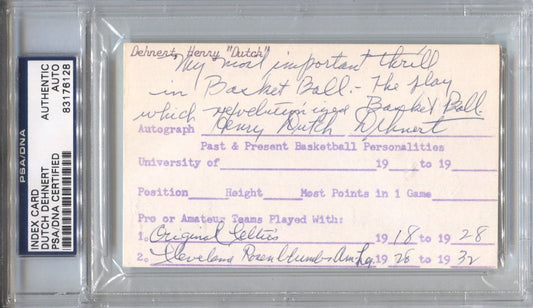 PSA/DNA
INDEX CARD
DUTCH DEHNERT
PSA/DNA CERTIFIED
AUTHENTIC
AUTO
83176128
Dehnert, Henry "Dutch"
My most important thrill
in Basket Ball. - The play
which revolutionized Basket Ball.
Autograph Henry Dutch Dehnert
Past & Present Basketball Personalities
University of 19 to 19
Position Height Most Points in 1 Game
Pro or Amateur Teams Played With:
1. Original Celtics 1918 to 1928
2. Cleveland Rosenblumbs Am. Lg. 1928 to 1932